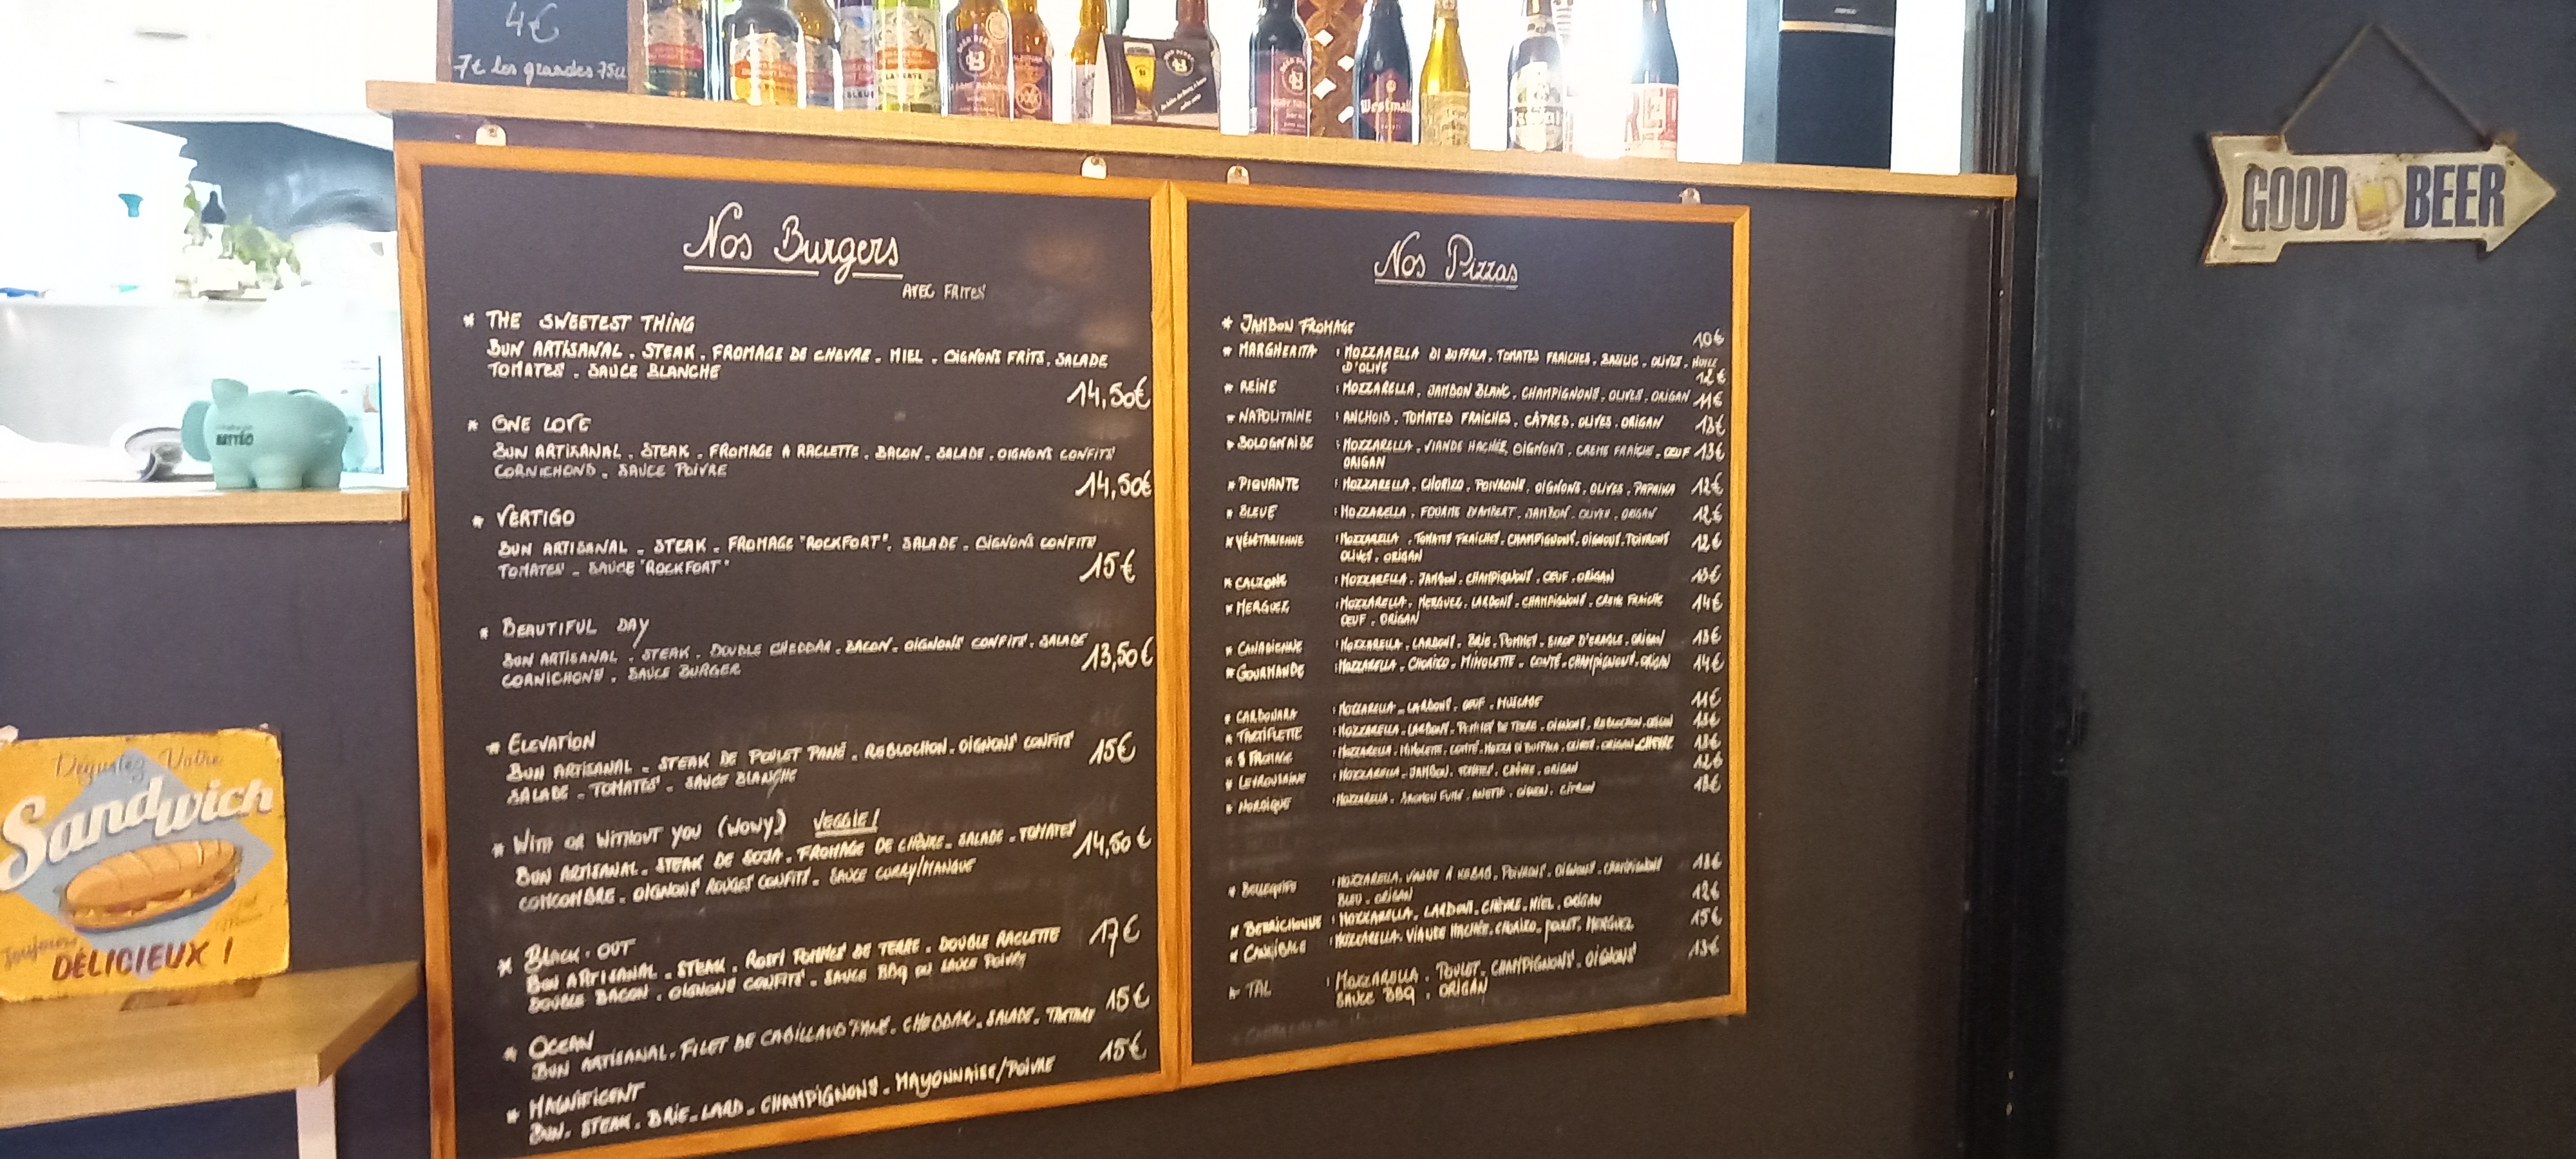 4€
7€ les grandes 75cl
Westmalle
GOOD BEER
MATTÉO
Dégustez Votre
Sandwich
Toujours
DÉLICIEUX !
Nos Burgers
AVEC FRITES
* THE SWEETEST THING
BUN ARTISANAL . STEAK . FROMAGE DE CHEVRE . MIEL . OIGNONS FRITS . SALADE
TOMATES . SAUCE BLANCHE
14,50€
* ONE LOVE
BUN ARTISANAL . STEAK . FROMAGE A RACLETTE . BACON . SALADE . OIGNONS CONFITS
CORNICHONS . SAUCE POIVRE
14,50€
* VERTIGO
BUN ARTISANAL . STEAK . FROMAGE "ROCKFORT" . SALADE . OIGNONS CONFITS
TOMATES . SAUCE "ROCKFORT"
15€
* BEAUTIFUL DAY
BUN ARTISANAL . STEAK . DOUBLE CHEDDAR . BACON . OIGNONS CONFITS . SALADE
CORNICHONS . SAUCE BURGER
13,50€
* ELEVATION
BUN ARTISANAL . STEAK DE POULET PANÉ . REBLOCHON . OIGNONS CONFITS
SALADE . TOMATES . SAUCE BLANCHE
15€
* WITH OR WITHOUT YOU (WOWY) VEGGIE !
BUN ARTISANAL . STEAK DE SOJA . FROMAGE DE CHÈVRE . SALADE . TOMATES
CONCOMBRE . OIGNONS ROUGES CONFITS . SAUCE CURRY/MANGUE
14,50€
* BLACK-OUT
BUN ARTISANAL . STEAK . ROSTI POMMES DE TERRE . DOUBLE RACLETTE
DOUBLE BACON . OIGNONS CONFITS . SAUCE BBQ OU SAUCE POIVRE
17€
* OCEAN
BUN ARTISANAL . FILET DE CABILLAUD PANÉ . CHEDDAR . SALADE . TARTARE
15€
* MAGNIFICENT
BUN . STEAK . BRIE . LARD . CHAMPIGNONS . MAYONNAISE/POIVRE
15€
Nos Pizzas
* JAMBON FROMAGE 10€
* MARGHERITA : MOZZARELLA DI BUFFALA . TOMATES FRAICHES . BASILIC . OLIVES . HUILE
D'OLIVE 12€
* REINE : MOZZARELLA . JAMBON BLANC . CHAMPIGNONS . OLIVES . ORIGAN 11€
* NAPOLITAINE : ANCHOIS . TOMATES FRAICHES . CÂPRES . OLIVES . ORIGAN 13€
* BOLOGNAISE : MOZZARELLA . VIANDE HACHÉE . OIGNONS . CREME FRAICHE . OEUF 13€
ORIGAN
* PIQUANTE : MOZZARELLA . CHORIZO . POIVRONS . OIGNONS . OLIVES . PAPRIKA 12€
* BLEUE : MOZZARELLA . FOURME D'AMBERT . JAMBON . OLIVES . ORIGAN 12€
* VÉGÉTARIENNE : MOZZARELLA . TOMATES FRAICHES . CHAMPIGNONS . OIGNONS . POIVRONS 12€
OLIVES . ORIGAN
* CALZONE : MOZZARELLA . JAMBON . CHAMPIGNONS . OEUF . ORIGAN 13€
* MERGUEZ : MOZZARELLA . MERGUEZ . LARDONS . CHAMPIGNONS . CREME FRAICHE 14€
OEUF . ORIGAN
* CANADIENNE : MOZZARELLA . LARDONS . BRIE . POMMES . SIROP D'ERABLE . ORIGAN 13€
* GOURMANDE : MOZZARELLA . CHORIZO . MIMOLETTE . COMTÉ . CHAMPIGNONS . ORIGAN 14€
* CARBONARA : MOZZARELLA . LARDONS . OEUF . MUSCADE 11€
* TARTIFLETTE : MOZZARELLA . LARDONS . POMMES DE TERRE . OIGNONS . REBLOCHON . ORIGAN 13€
* 5 FROMAGE : MOZZARELLA . MIMOLETTE . COMTÉ . MOZZA DI BUFFALA . OLIVES . ORIGAN . CHEVRE 13€
* LEVROUSAINE : MOZZARELLA . JAMBON . TOMATES . CHÈVRE . ORIGAN 12€
* NORDIQUE : MOZZARELLA . SAUMON FUMÉ . ANETH . OIGNON . CITRON 13€
* : MOZZARELLA . VIANDE A KEBAB . POIVRONS . OIGNONS . CHAMPIGNONS 13€
BLEU . ORIGAN
* BERRICHONNE : MOZZARELLA . LARDONS . CHÈVRE . MIEL . ORIGAN 12€
* CANNIBALE : MOZZARELLA . VIANDE HACHÉE . CHORIZO . POULET . MERGUEZ 15€
* TAL : MOZZARELLA . POULET . CHAMPIGNONS . OIGNONS 13€
SAUCE BBQ . ORIGAN